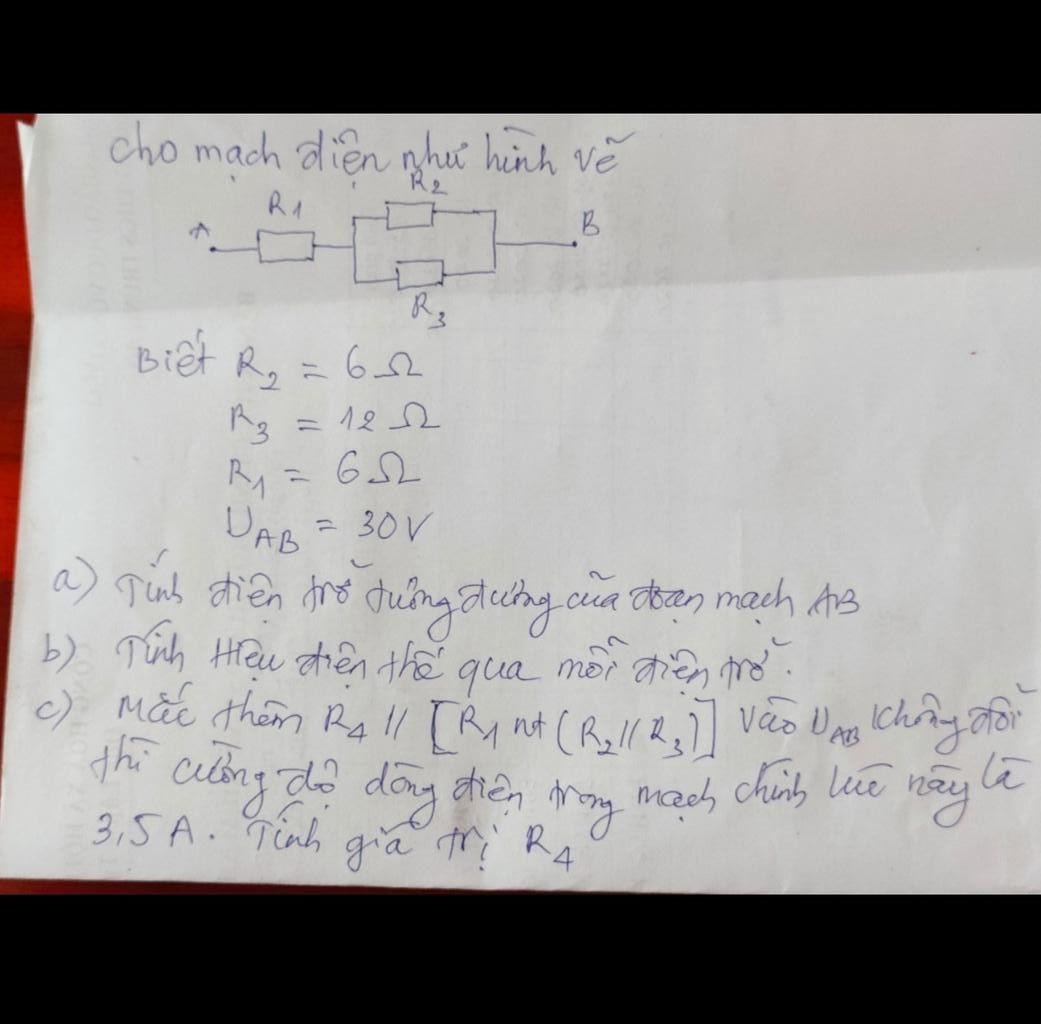 Cho mạch điện như hình vẽ
R2
R1
A
B
R3
Biết R2 = 6 Ω
R3 = 12 Ω
R1 = 6 Ω
UAB = 30V
a) Tính điện trở tương đương của đoạn mạch AB
b) Tính Hiệu điện thế qua mỗi điện trở.
c) Mắc thêm R4 // [R1 nt (R2 // R3)] vào UAB không đổi
thì cường độ dòng điện trong mạch chính lúc này là
3,5 A. Tính giá trị R4